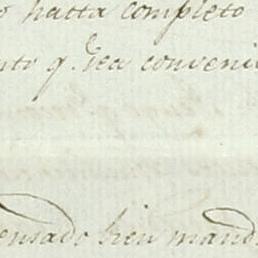 hasta completo
q. sea conveni
ensado bien mand